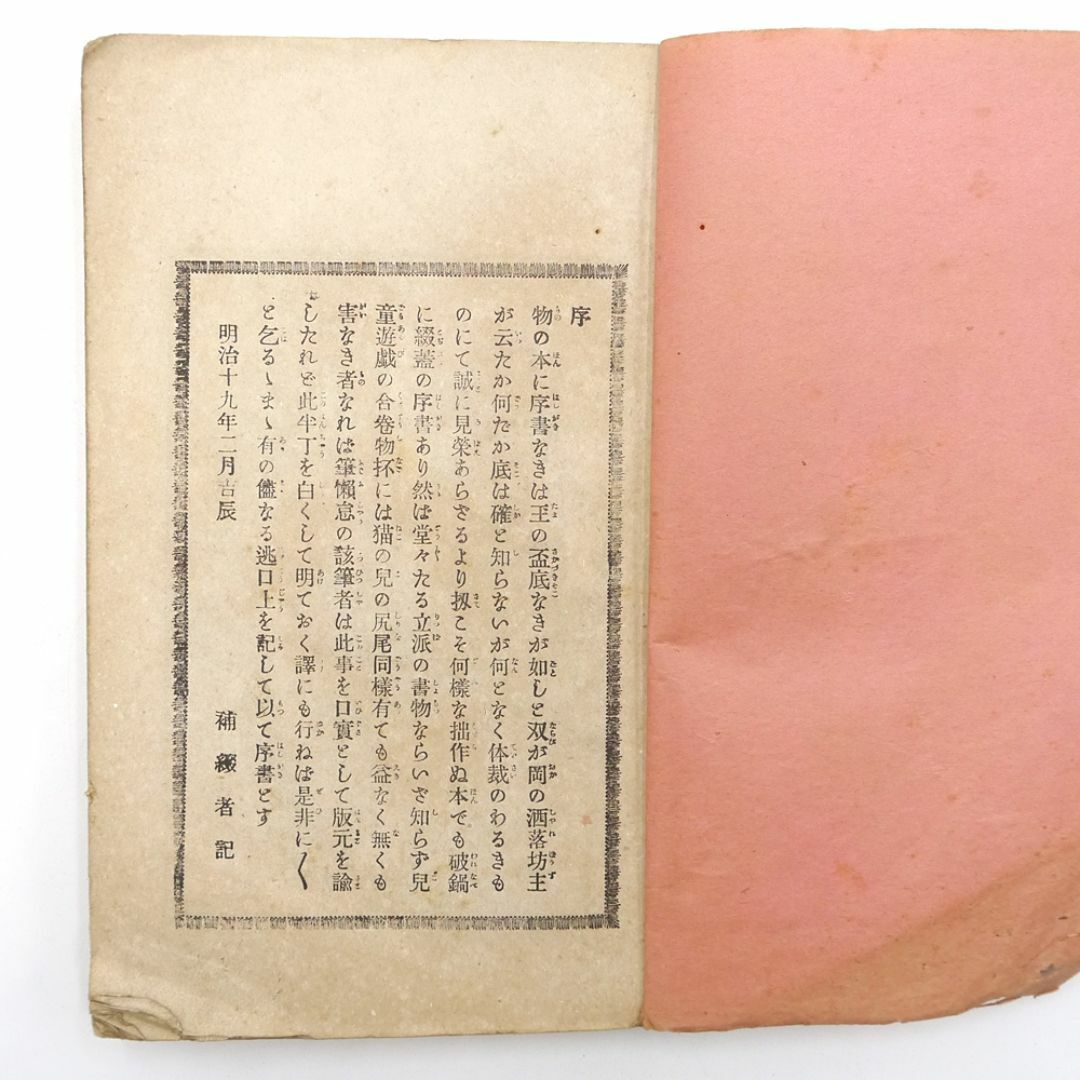 序
物の本に序書なきは玉の盃底なきが如しと双が岡の洒落坊主
が云たか何だか底は確と知らないが何となく体裁のわるきも
のにて誠に見榮あらざるより扨こそ何樣な拙作ぬ本でも破鍋
に綴蓋の序書あり然は堂々たる立派の書物ならいざ知らず兒
童遊戯の合卷物抔には猫の兒の尻尾同樣有ても益なく無くも
害なき者なれば懶惰の該筆者は此事を口實として版元を諭
したれど此半丁を白くして明ておく譯にも行ねば是非に〱
と乞るゝまゝ有の儘なる逃口上を記して以て序書とす
明治十九年二月吉辰
補綴者記